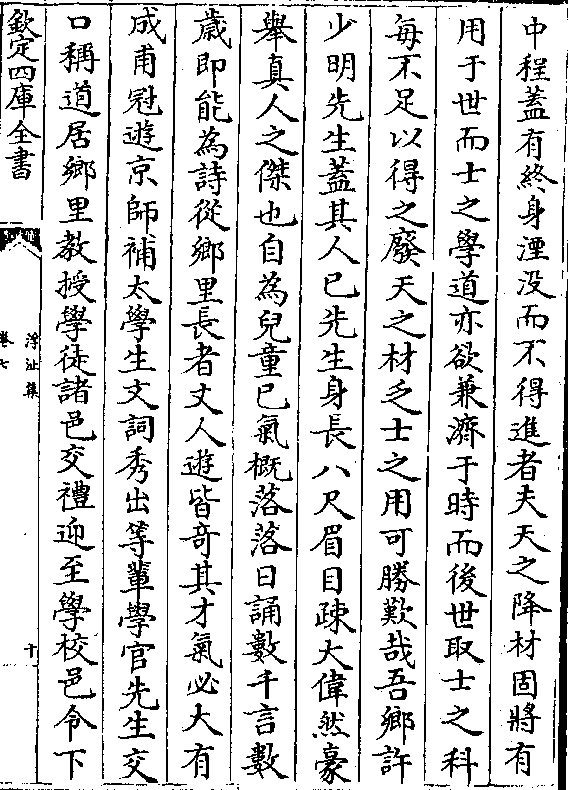 中程蓋有終身湮没而不得進者夫天之降材固將有
用于世而士之學道亦欲兼濟于時而後世取士之科
每不足以得之廢天之材乏士之用可勝歎哉吾鄉許
少明先生蓋其人已先生身長八尺眉目疎大偉然豪
舉真人之傑也自為兒童已氣概落落日誦數千言數
歲即能為詩從鄉里長者丈人遊皆竒其才氣必大有
成甫冠遊京師補太學生文詞秀出等軰學官先生交
口稱道居鄉里教授學徒諸邑交禮迎至學校邑令下
欽定四庫全書
浮沚集
卷七
十